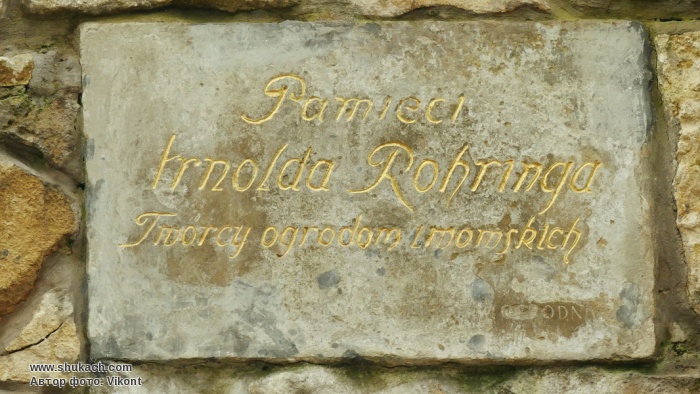 Pamięci
Arnolda Rohringa
Twórcy ogrodów lwowskich
www.shukach.com
Автор фото: Vikont